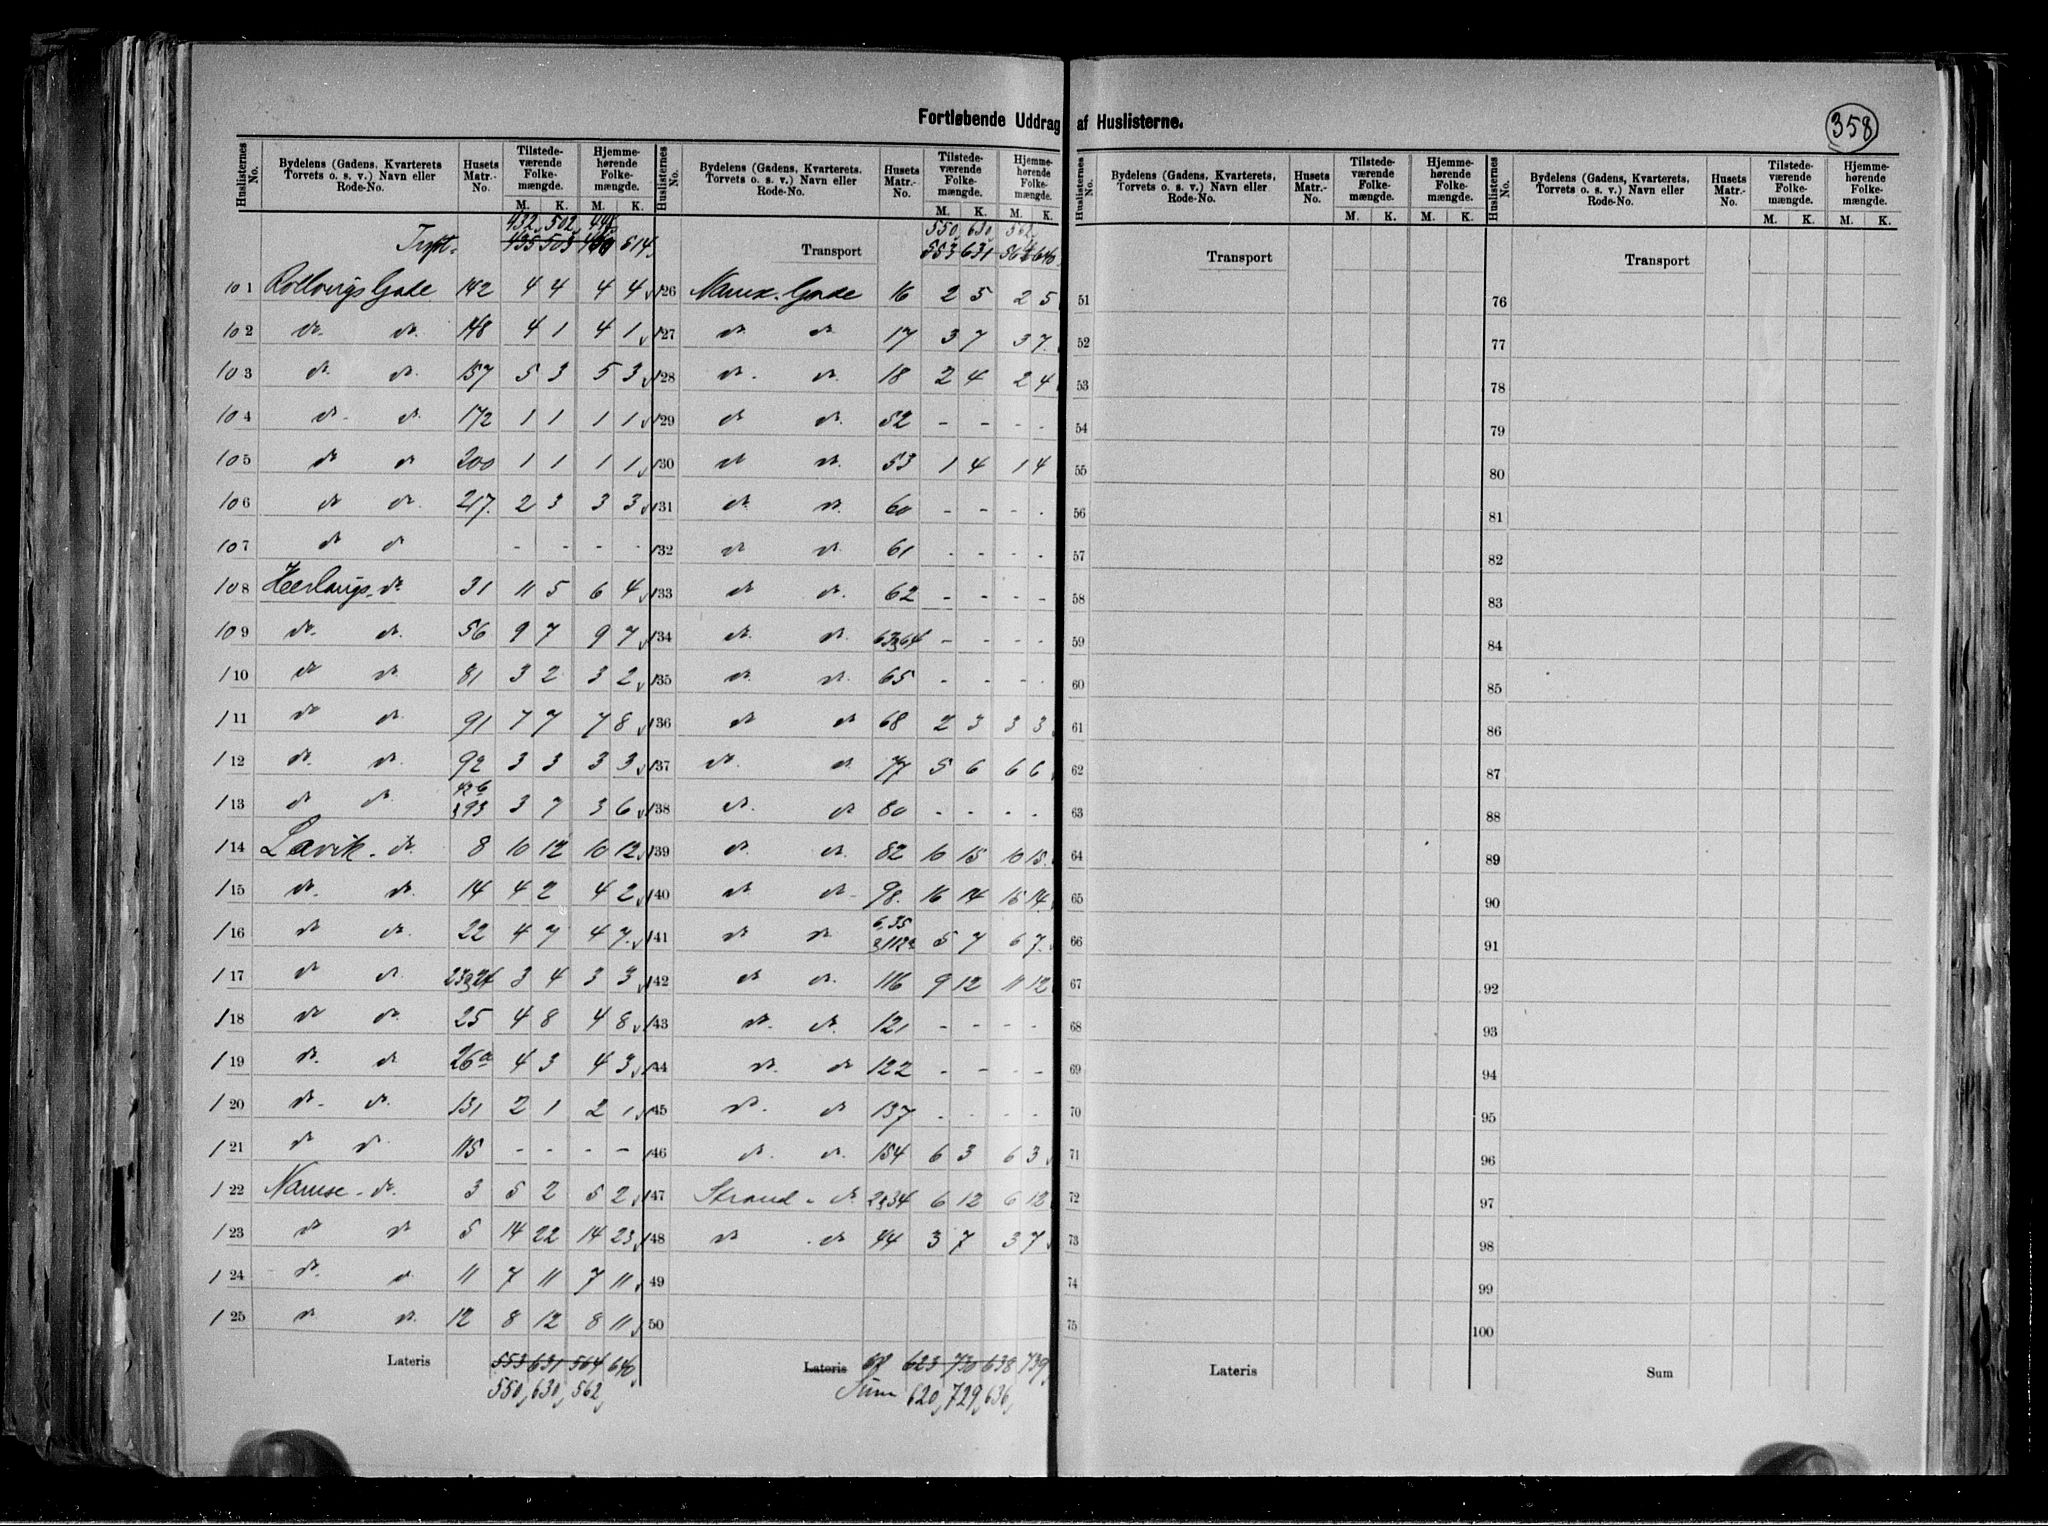 Fortløbende Uddrag af Huslisterne.
358
Huslisternes No. Bydelens (Gadens, Kvarterets Torvets o. s. v.) Navn eller Rode-No. Husets Matr.-No. Tilstede-værende Folke-mængde. M. K. Hjemme-hørende Folke-mængde. M. K.
432, 502, 448,
Trspt. 435 505 450 514,
101 Rollougs Gade 142 4 4 4 4
102 do. do. 148 4 1 4 1
103 do. do. 157 5 3 5 3
104 do. do. 172 1 1 1 1
105 do do 200 1 1 1 1
106 do do. 217. 2 3 3 3
107 do do - - - -
108 Heerlaugs do 31 11 5 6 4
109 do. do. 56 9 7 9 7
110 do do 81 3 2 3 2
111 do do. 91 7 7 7 8
112 do. do. 92 3 3 3 3
113 do do. & 93 3 7 3 6
114 Lavik do. 8 10 12 10 12
115 do. do. 14 4 2 4 2
116 do do. 22 4 7 4 7.
117 do do. 23 & 24 3 4 3 3
118 do do. 25 4 8 4 8
119 do. do 26a 4 3 4 3
120 do. do. 131 2 1 2 1
121 do do. 115 - - - -
122 Namse do. 3 5 2 5 2
123 do do 5 14 22 14 23
124 do. do 11 7 11 7 11
125 do do. 12 8 12 8 11
Lateris 553 631 564 640,
550, 630, 562,
Huslisternes No. Bydelens (Gadens, Kvarterets. Torvets o. s. v.) Navn eller Rode-No. Husets Matr.-No. Tilstede-værende Folke-mængde. M. K. Hjemme-hørende Folke-mængde. M. K.
550, 630, 562,
Transport 553 631 564 640.
126 Namse. Gade 16 2 5 2 5
127 do do 17 3 7 3 7.
128 do. do. 18 2 4 2 4
129 do do. 52 - - - -
130 do do. 53 1 4 1 4
131 do. do. 60 - - - -
132 do do. 61 - - - -
133 do do. 62 - - - -
134 do. do. 63 & 64 - - - -
135 do. do. 65 - - - -
136 do do 68 2 3 3 3
137 do. do. 77 5 6 6 6
138 do. do 80 - - - -
139 do. do. 82 10 15 10 15.
140 do do. 98. 16 14 15 14
141 do do. 6, 35 & 112a 5 7 6 7.
142 do do. 116 9 12 11 12
143 do. do. 121 - - - -
144 do. do 122 - - - -
145 do. do 137 - - - -
146 do. do. 154 6 3 6 3
147 Strand - do 2 & 34 6 12 6 12
148 do do 44 3 7 3 7
49
50
Lateris 623 730 638 739,
Sum 620, 729, 636,
Huslisternes No. Bydelens (Gadens, Kvarterets, Torvets o. s. v.) Navn eller Rode-No. Husets Matr.-No. Tilstede-værende Folke-mængde. M. K. Hjemme-hørende Folke-mængde. M. K.
Transport
51
52
53
54
55
56
57
58
59
60
61
62
63
64
65
66
67
68
69
70
71
72
73
74
75
Lateris
Huslisternes No. Bydelens (Gadens, Kvarterets, Torvets o. s. v.) Navn eller Rode-No. Husets Matr.-No. Tilstede-værende Folke-mængde. M. K. Hjemme-hørende Folke-mængde. M. K.
Transport
76
77
78
79
80
81
82
83
84
85
86
87
88
89
90
91
92
93
94
95
96
97
98
99
100
Sum